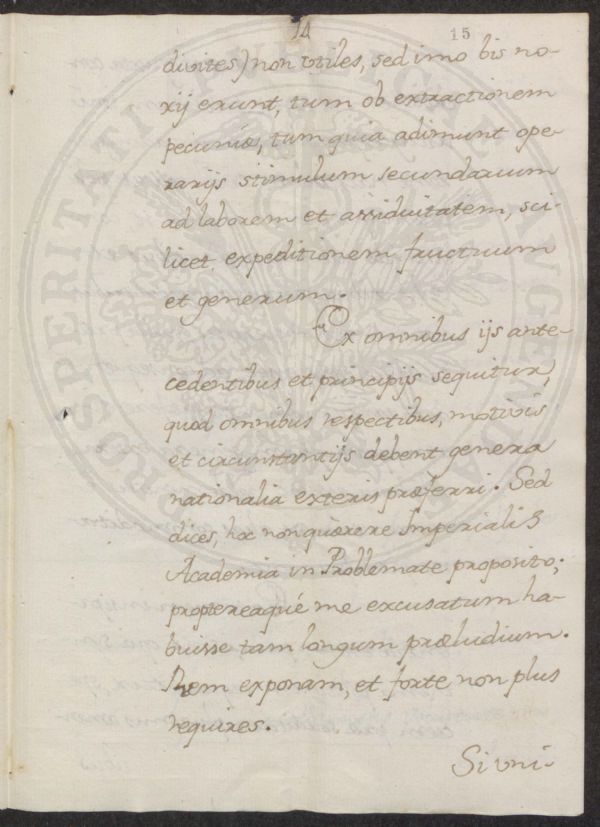 14 15
divites) non utiles, sed imo bis no-
xij erunt, tum ob extractionem
pecuniæ, tum quia adimunt ope-
rarijs stimulum secundarium
ad laborem et assiduitatem, sci-
licet expeditionem fructuum
et generum.
Ex omnibus ijs ante-
cedentibus et principijs sequitur,
quod omnibus respectibus, motivis
et circunstantijs debent genera
nationalia exteris præferri. Sed
dices, hæc non quærere Imperialis
Academia in Problemate proposito;
propterea quæ me excusatum ha-
buisse tam longum præludium.
Rem exponam, et forte non plus
requires.
Si uni-
PROSPERITATI PUBLICAE AUGENDAE